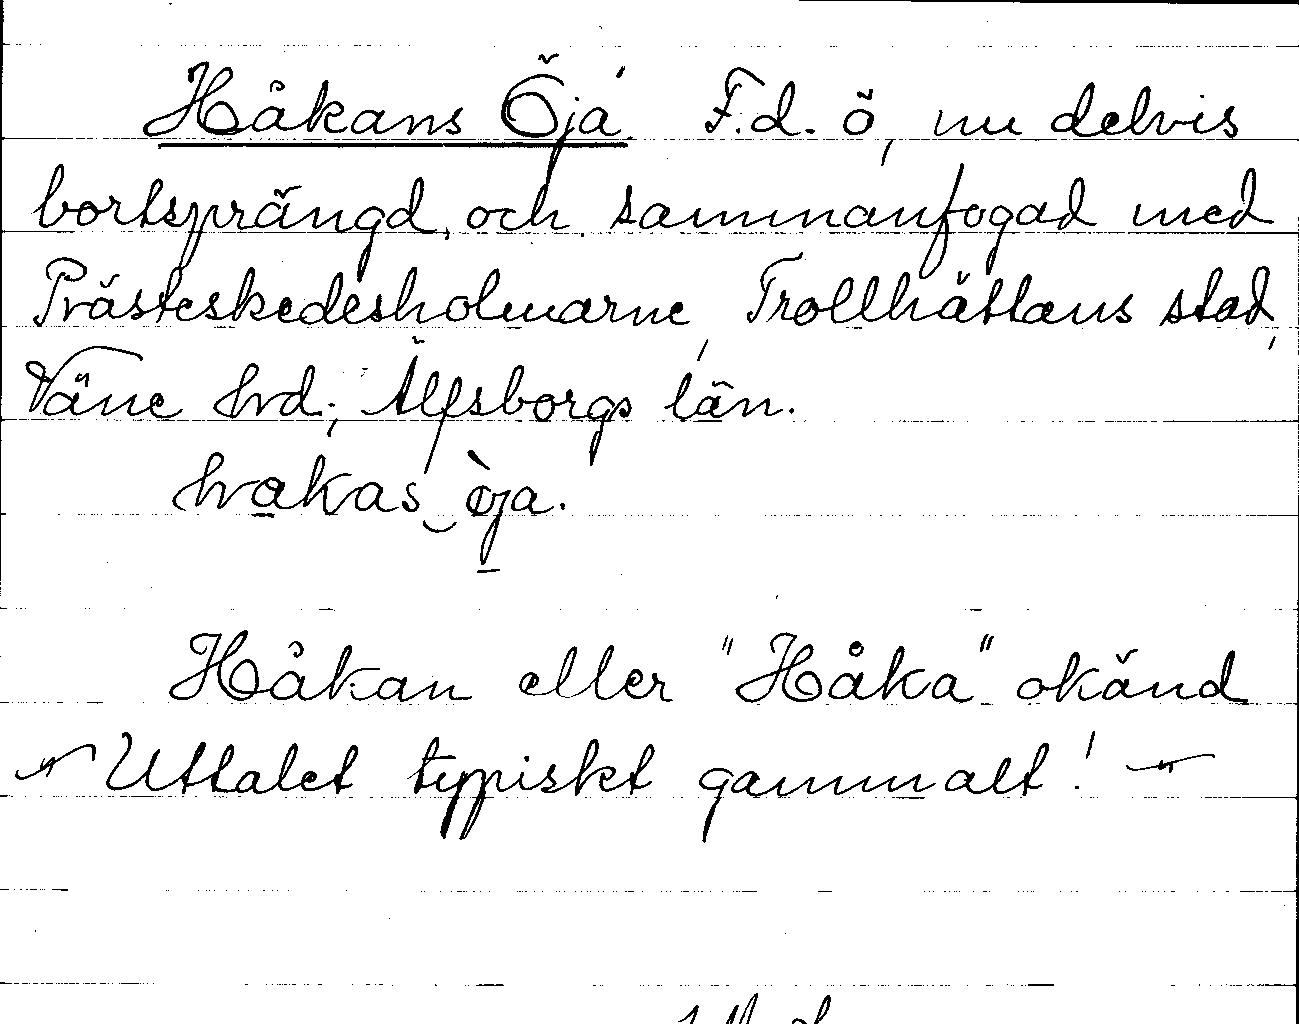 Håkans Öja. F.d. ö, nu delvis
bortsprängd, och sammanfogad med
Prästeskedesholmarne, Trollhättans stad,
Väne hrd; Älfsborgs län.
öja.
Håkan eller "Håka" okänd
Uttalet typiskt gammalt!